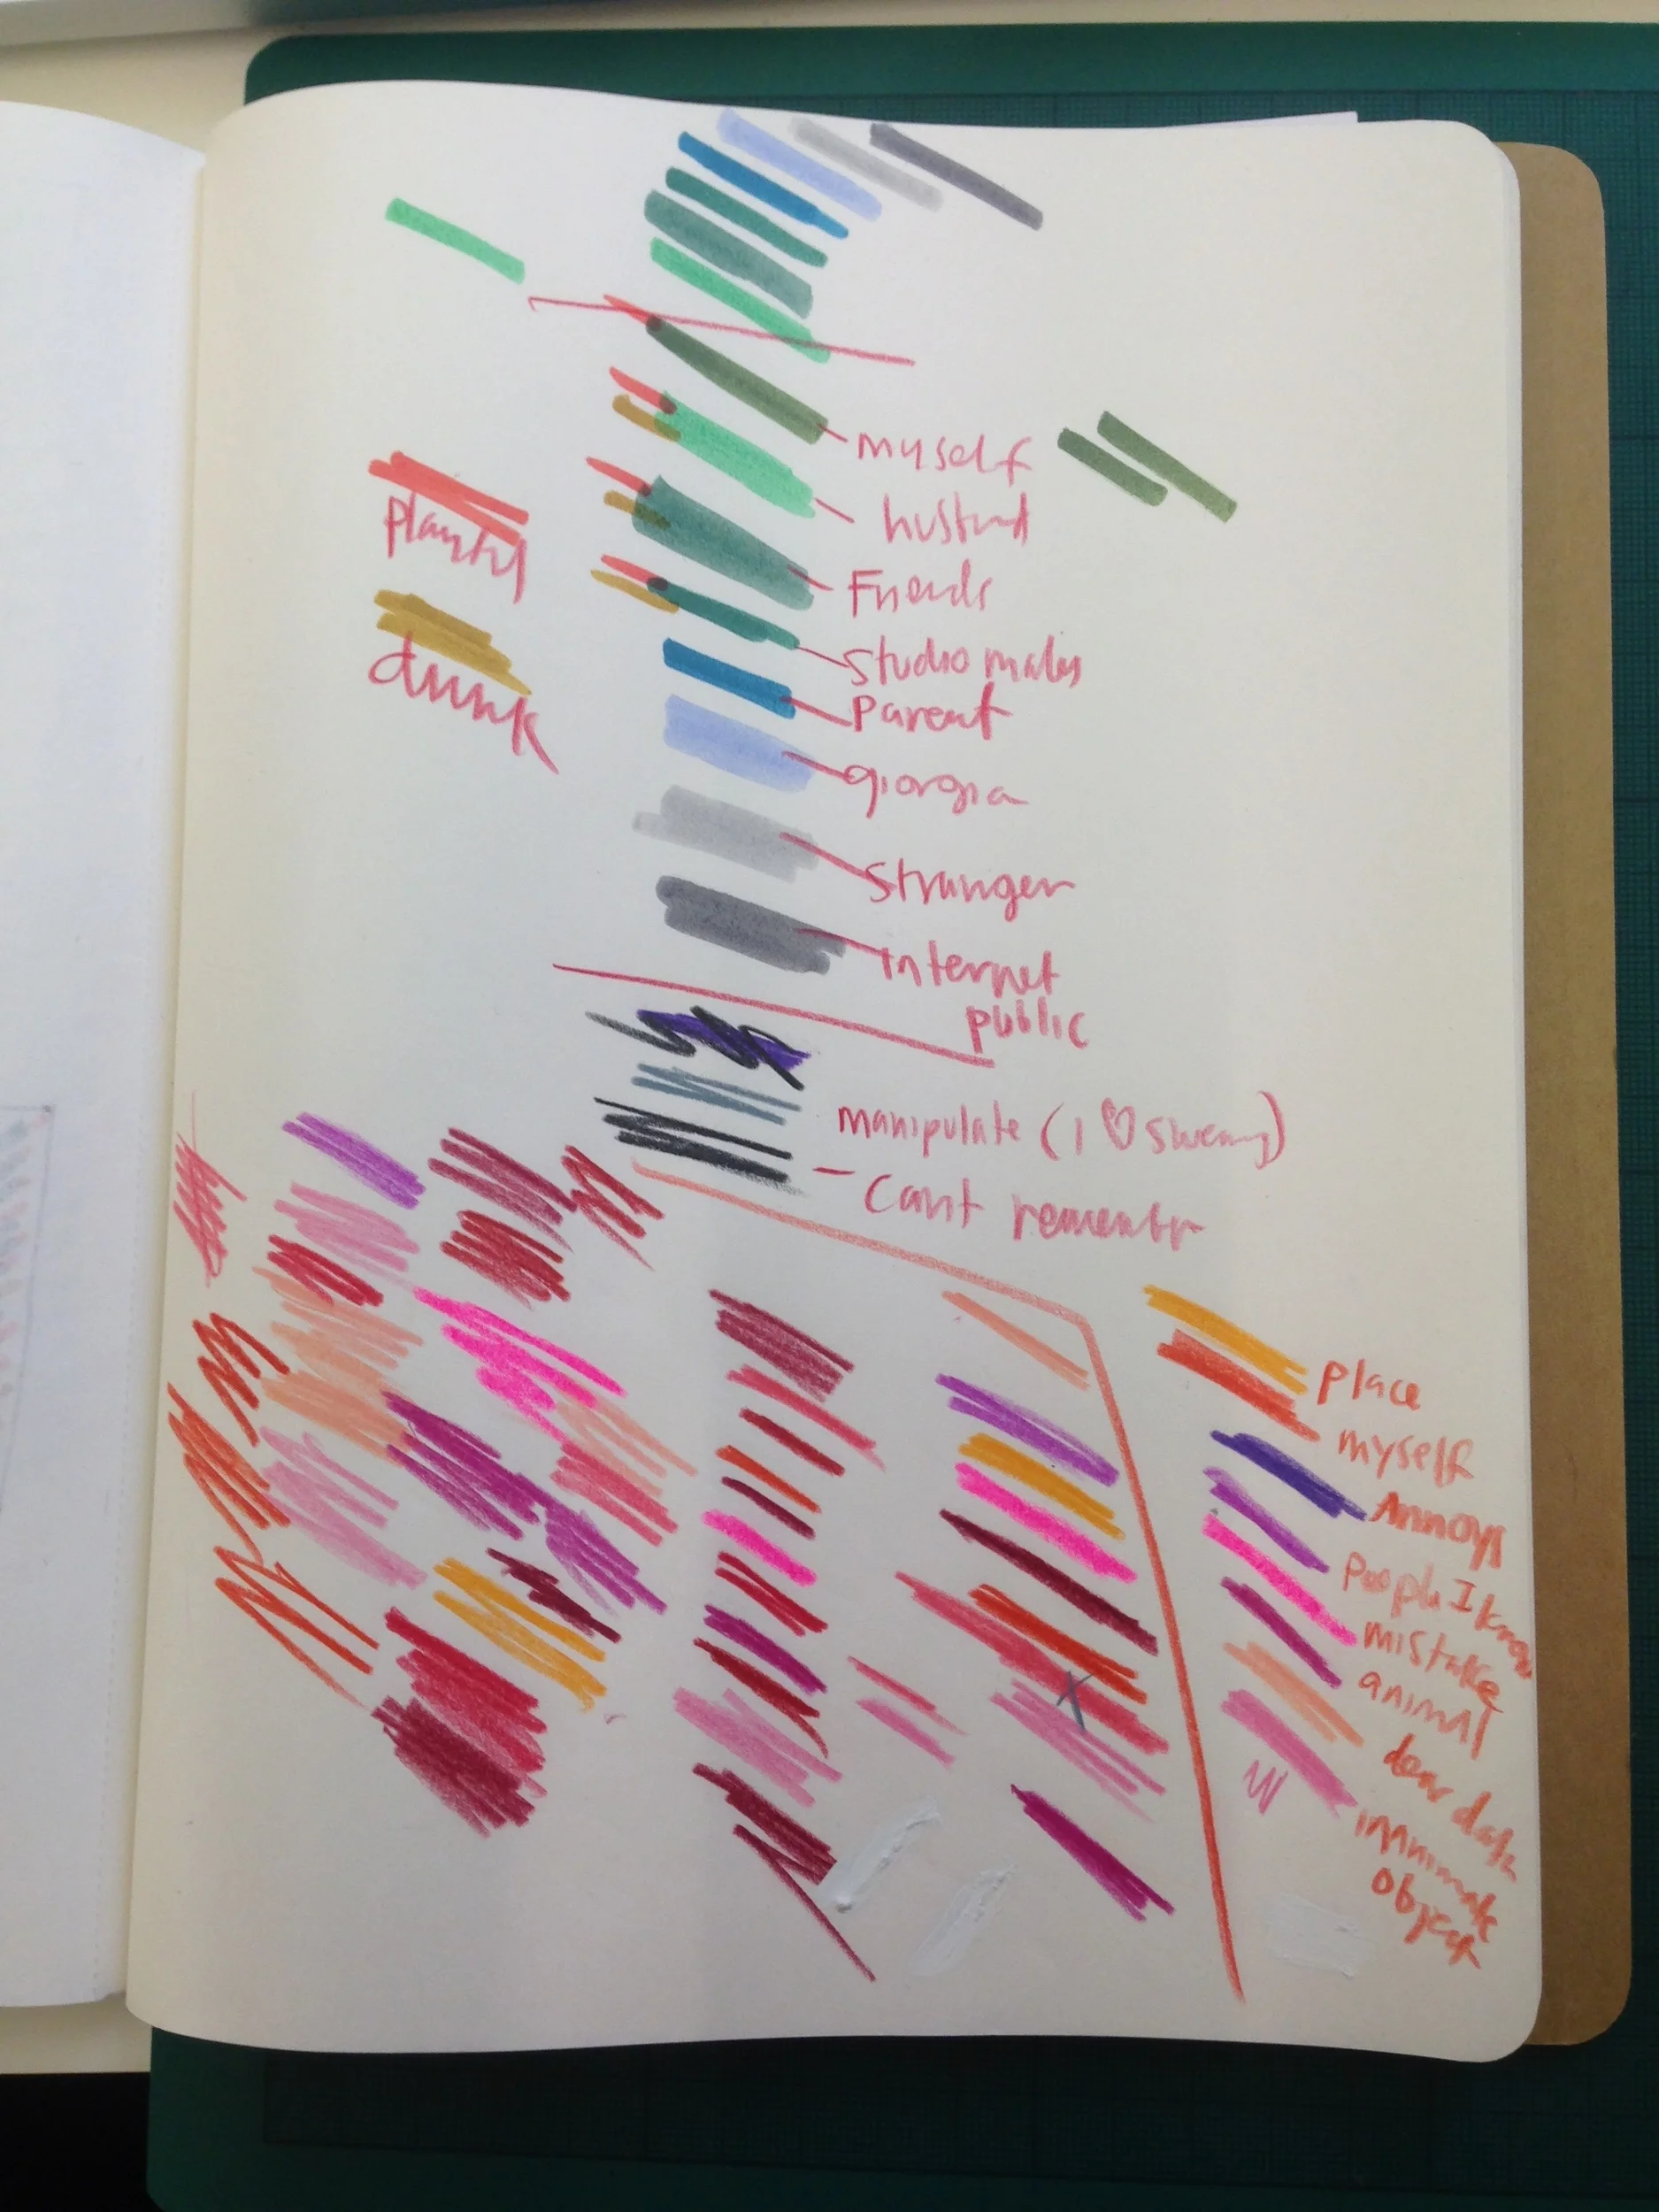 myself
husbnd
Friends
playful
drunk
Studio mates
Parent
giorgia
Stranger
Internet
public
manipulate (I ♡ swearing)
Cant remember
place
myself
Annoys
People I know
mistake
animal
dear data
innimate
object